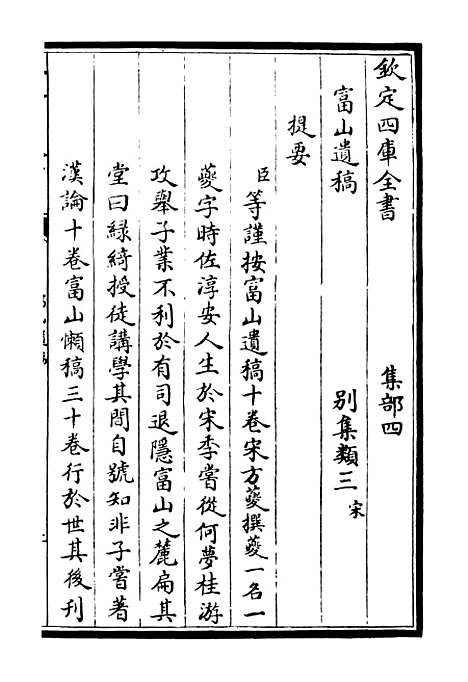 欽定四庫全書　集部四
富山遺稿　別集類三宋
提要
臣等謹按富山遺稿十卷宋方夔撰夔一名一
夔字時佐淳安人生於宋季嘗從何夢桂游
攻舉子業不利於有司退隱富山之麓扁其
堂曰緑綺授徒講學其間自號知非子嘗著
漢論十卷富山懶稿三十卷行於世其後刊